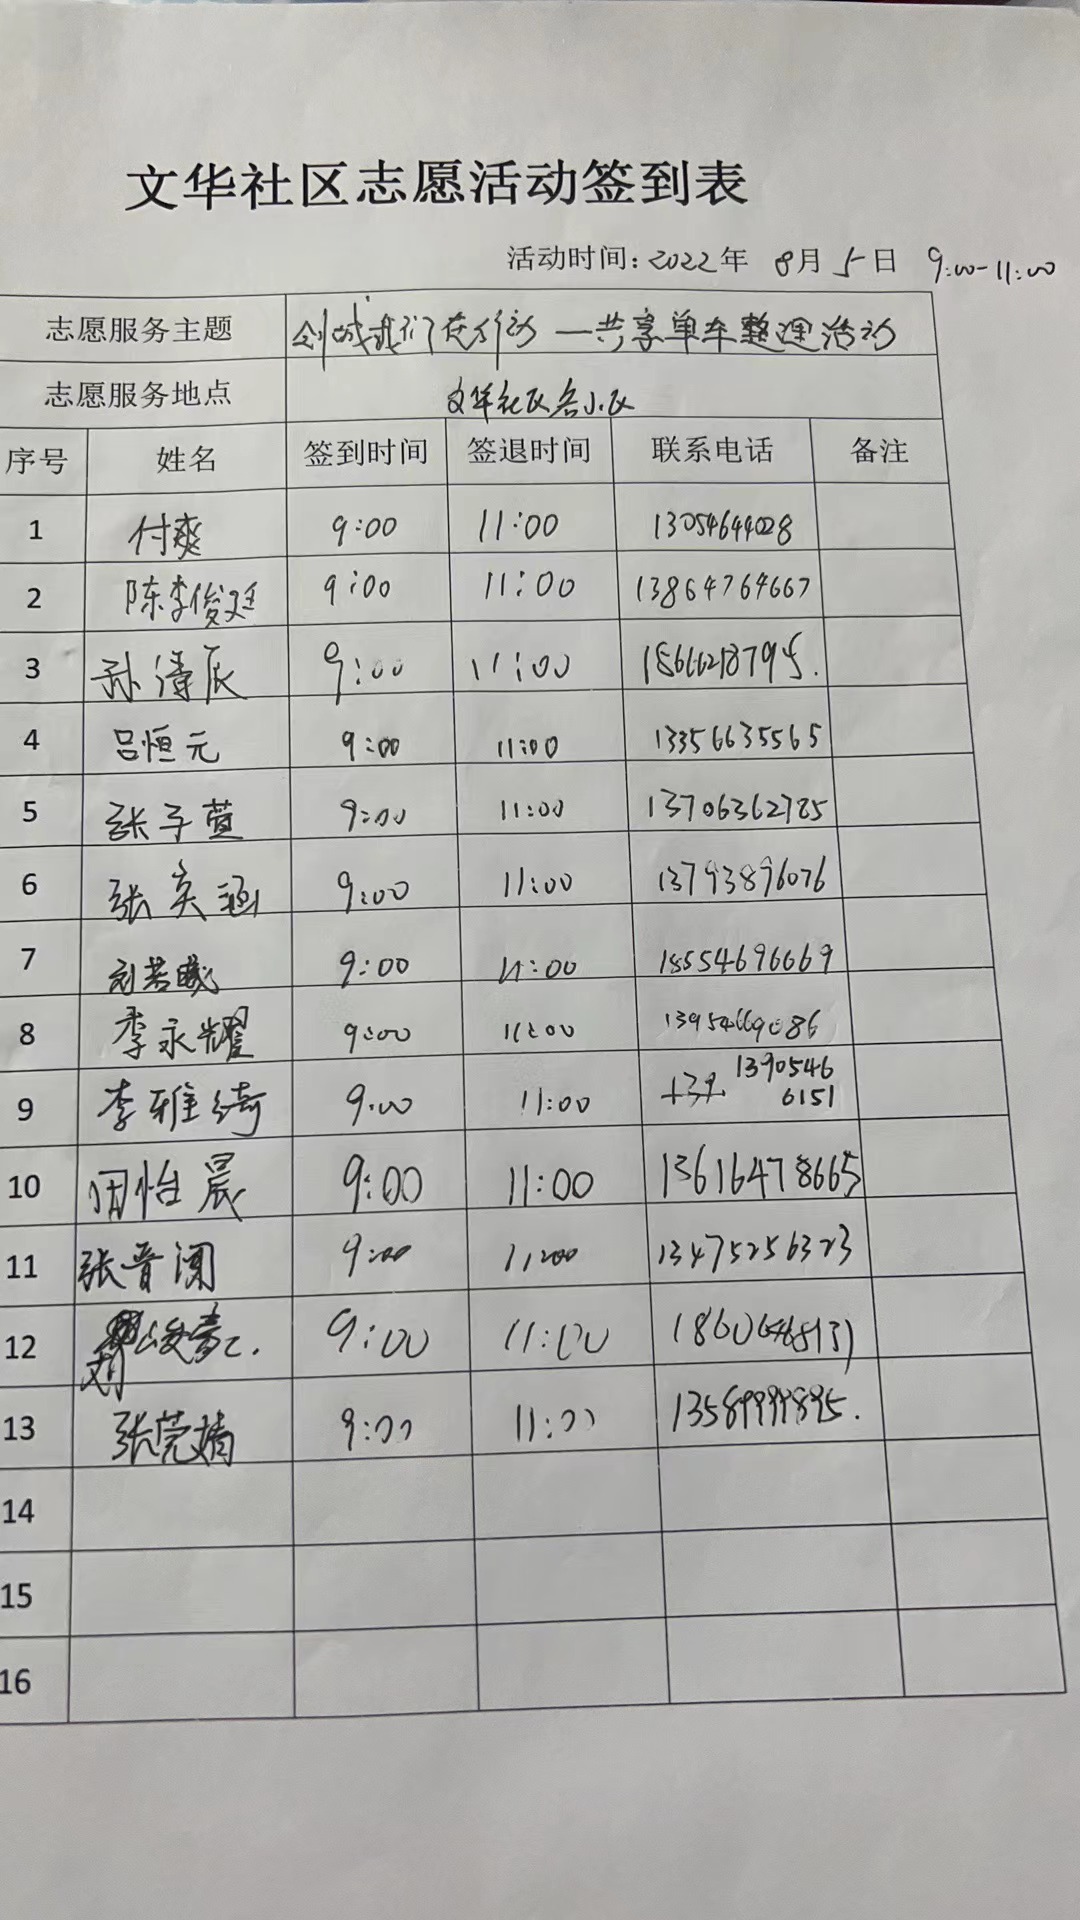 文华社区志愿活动签到表
活动时间：2022年 8月5日 9:00-11:00
志愿服务主题 创城我们在行动 —共享单车整理活动
志愿服务地点 文华社区各小区
序号 姓名 签到时间 签退时间 联系电话 备注
1 付爽 9:00 11:00 13054644028
2 陈李俊廷 9:00 11:00 13864764667
3 孙涛辰 9:00 11:00
4 吕恒元 9:00 11:00 13356635565
5 张子萱 9:00 11:00 13706362785
6 张奕涵 9:00 11:00 13793896076
7 刘若曦 9:00 11:00 18554696669
8 李永耀 9:00 11:00 13954669086
9 李雅绮 9:00 11:00 1390546
6151
10 怡晨 9:00 11:00 13616478665
11 张晋闻 9:00 11:00 13475256323
12 刘 9:00 11:00
13 张莞婧 9:00 11:00 13589999895.
14
15
16